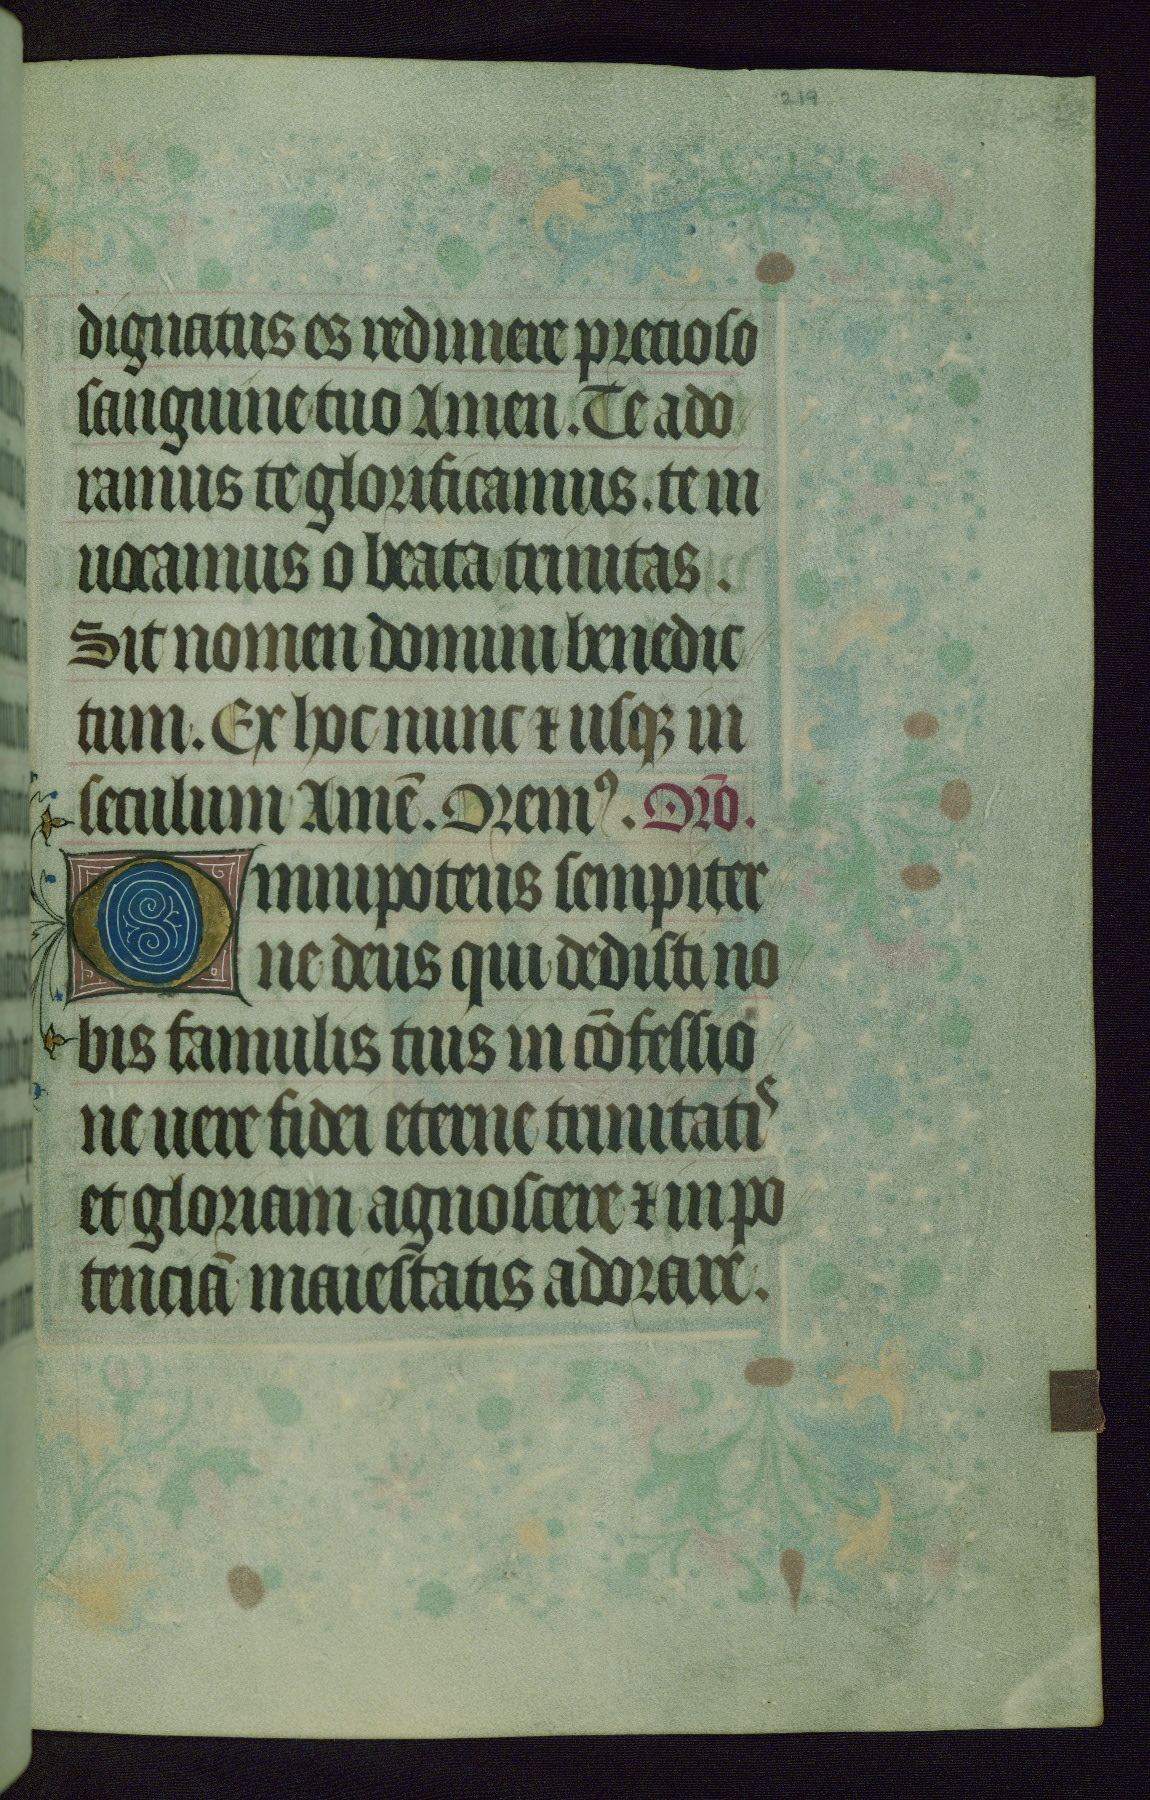 219
dignatus es redimere precioso
sanguine tuo Amen. Te ado
ramus te glorificamus. te in
uocamus o beata trinitas.
Sit nomen domini benedic
tum. Ex hoc nunc ⁊ usqꝫ in
seculum Amē. Oremꝰ. Orō.
Omnipotens sempiter
ne deus qui dedisti no
bis famulis tuis in cōfessio
ne uere fidei eterne trinitatis
et gloriam agnoscere ⁊ in po
tenciā maiestatis adorare.